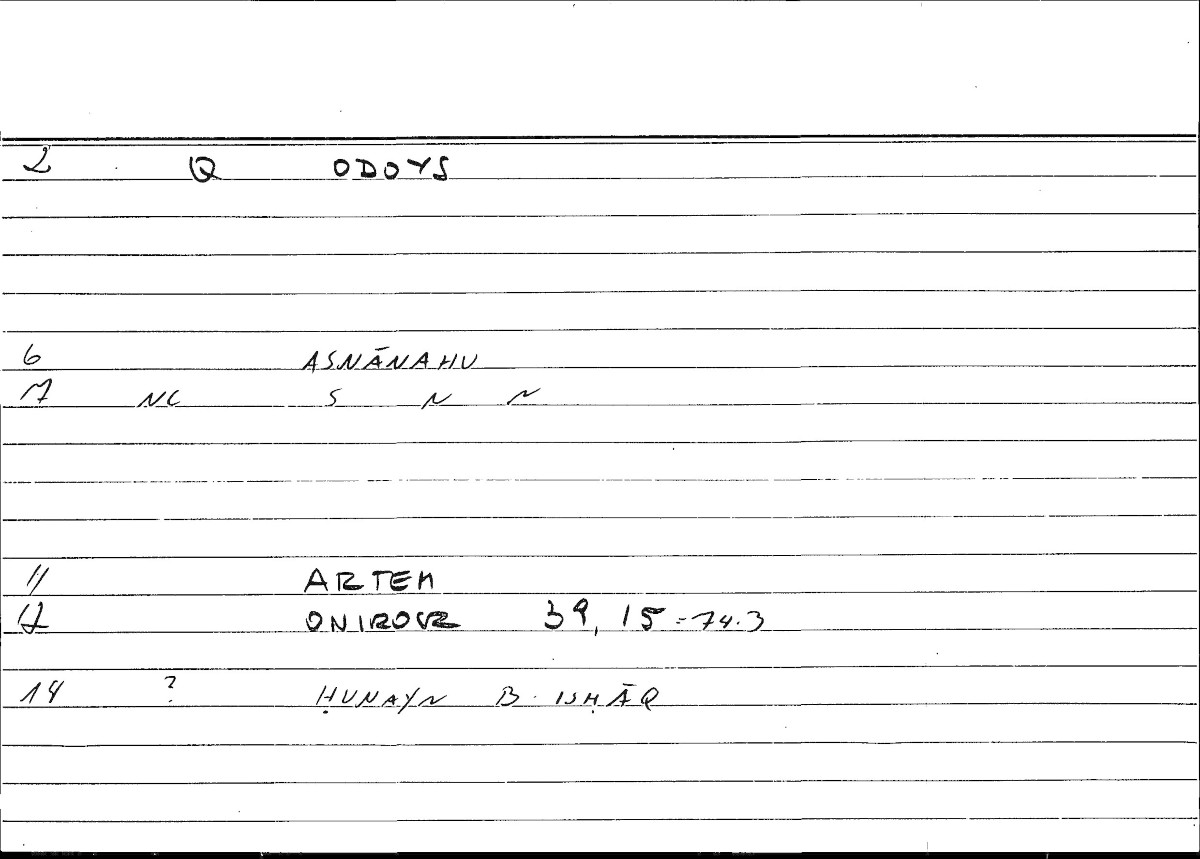 2 Q ODOYS
6 ASNĀNAHU
7 NC S N N
11 ARTEM
12 ONIROCR 39, 15 = 74.3
14 ? ḤUNAYN B. ISḤĀQ